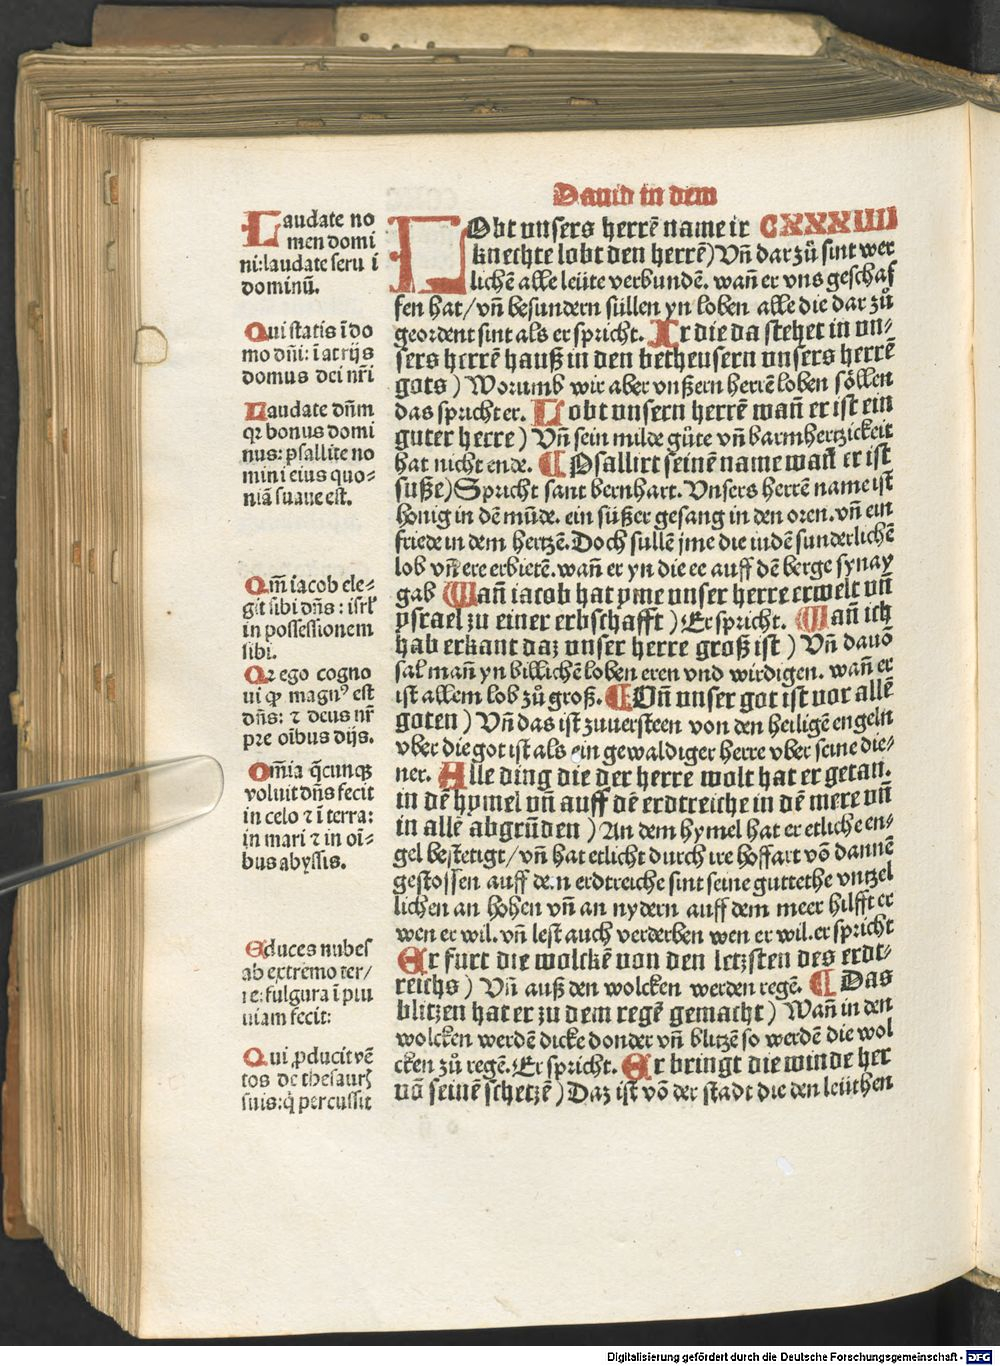 Dauid in dem
Laudate no
men domi
ni: laudate serui
dominū.
Qui statis ī do
mo dñi: ī atrijs
domus dei nr̄i
Laudate dñm
qꝛ bonus domi
nus: psallite no
mini eius quo⸗
niā suaue est.
Qm̄ iacob ele⸗
git sibi dñs: isrl'
in possessionem
sibi.
Qꝛ ego cogno
ui ꝙ magnꝰ est
dñs: ⁊ deus nr̄
pre oībus dijs.
Om̄ia q̄cunqꝫ
voluit dñs fecit
in celo ⁊ ī terra:
in mari ⁊ in oī⸗
bus abyssis.
Educes nubes
ab extremo ter/
re: fulgura ī plu
uiam fecit:
Qui ꝓducit vē
tos de thesauꝝ
suis: q̄ percussit
LObt unsers herrē name ir CXXXIIII
knechte lobt den herrē) Vñ dar zů sint wer
lichē alle leüte verbundē. wañ er vns geschaf
fen hat/ vñ besundern süllen yn loben alle die dar zů
geordent sint als er spricht. Ir die da stehet in un⸗
sers herrē hauß in den betheusern unsers herrē
gots) Worumb wir aber vnßern herrē loben söllen
das spricht er. Lobt unsern herrē wañ er ist ein
guter herre) Vñ sein milde gůte vñ barmhertzickeit
hat nicht ende. ¶ Psallirt seinē name wañ er ist
süße) Spricht sant bernhart. Vnsers herrē name ist
honig in dē mūde. ein süßer gesang in den oren. vñ ein
friede in dem hertzē. Doch sullē jme die iudē sunderlichē
lob vñ ere erbietē. wañ er yn die ee auff dē berge synay
gab Wañ iacob hat yme unser herre erwelt vñ
ysrael zu einer erbschafft) Er spricht. Wañ ich
hab erkant daz unser herre groß ist) Vñ dauō
sal mañ yn billichē loben eren vnd wirdigen. wañ er
ist allem lob zů groß. ¶ Vñ unser got ist vor allē
goten) Vñ das ist zuuersteen von den heiligē engeln
vber die got ist als ein gewaldiger herre vber seine die⸗
ner. Alle ding die der herre wolt hat er getan.
in dē hymel vñ auff dē erdtreiche in dē mere vñ
in allē abgrūden) An dem hymel hat er etliche en⸗
gel bestetigt/ vñ hat etlicht durch ire hoffart vō dannē
gestossen auff dem erdtreiche sint seine guttethe vntzel
lichen an hohen vñ an nydern auff dem meer hilfft er
wen er wil. vñ lest auch verderben wen er wil. er spricht
Er furt die wolckē von den letzsten des erdt⸗
reichs) Vñ auß den wolcken werden regē. ¶ Das
blitzen hat er zu dem regē gemacht) Wañ in den
wolcken werdē dicke donder vñ blitzē so werdē die wol
cken zů regē. Er spricht. Er bringt die winde her
vñ seinē schetzē) Daz ist vō der stadt die den leüthen
Digitalisierung gefördert durch die Deutsche Forschungsgemeinschaft - DFG